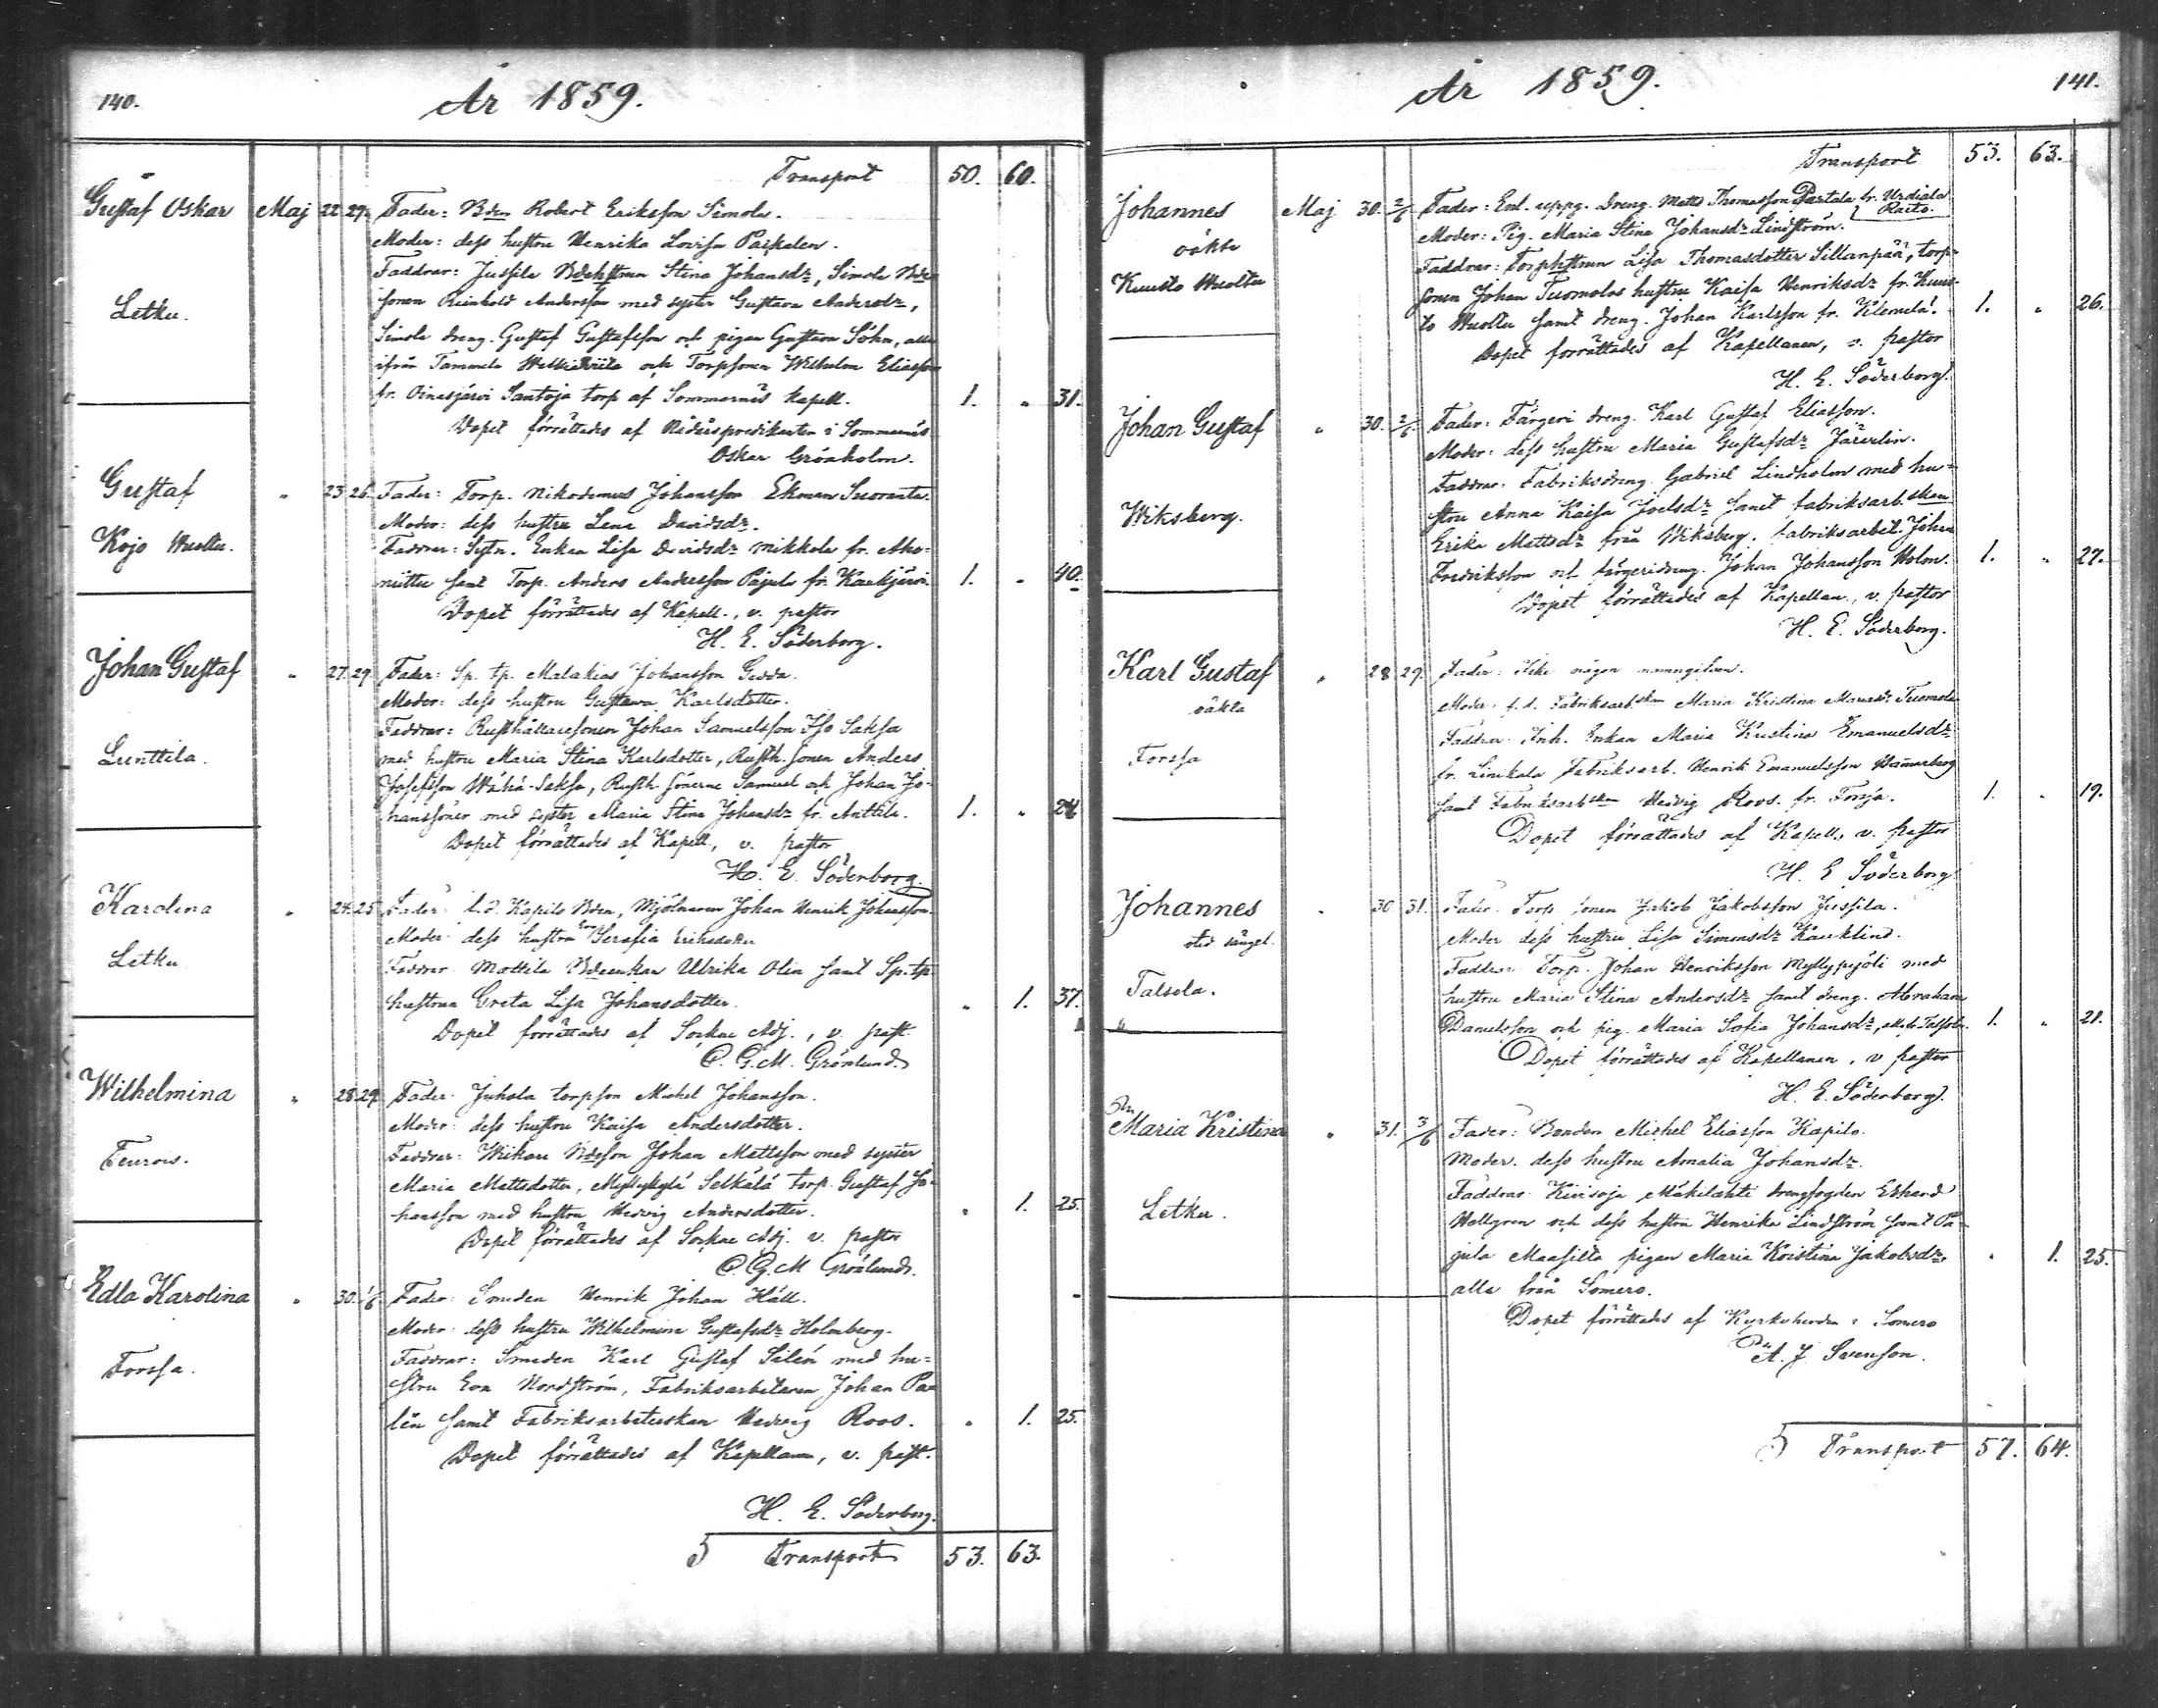 140.
År 1859.
Transport 50. 60.
Gustaf Oskar Maj 22 29. Fader: Bden Robert Eriksson Simola.
Moder: dess hustru Henrika Lovisa
Letku.
Faddrar: Jussila Bdehustrun Stina Johansdr, Simola Bde
sonen Reinhold Andersson med syster Gustava Andersdr,
Simola dreng. Gustaf Gustafsson och pigan Gustava Söhn, alla
ifrån Tammela och Torpsonen Wilhelm Eliasson
fr. Oinasjärvi Santoja torp af Sommarnäs kapell. 1. " 31.
Dopet förrättades af Rådspredikanten i Sommarnäs
Oskar Grönholm.
Gustaf " 23 26. Fader: Torp. Nikodemus Johansson Ekman Suoranta.
Moder: dess hustru Lena Davidsdr.
Kojo Waltu.
Faddrar: Sytn. Enkan Lisa Davidsdr Mikkola fr. Aho-
niittu samt Torp. Anders Andersson Pajula fr. Kaukjärvi. 1. " 40.
Dopet förrättades af Kapell., v. pastor
H. E. Söderborg.
Johan Gustaf " 27 29. Fader: Sp. tp. Malakias Johansson
Moder: dess hustru Gustava Karlsdotter.
Lunttila.
Faddrar: Rusthållaresonen Johan Samuelsson Iso Saksa
med hustru Maria Stina Karlsdotter, Rusth. sonen Anders
Josefsson Wähä-Saksa, Rusth. sönerne Samuel och Johan Jo-
hanssöner med syster Maria Stina Johansdr fr. Anttila. 1. " 24
Dopet förrättades af Kapell, v. pastor
H. E. Söderborg.
Karolina " 24. 25. Fader: f.d. Kapilo Bden, Mjölnaren Johan Henrik Johansson.
Moder: dess hustru Eva Serafia Eriksdotter
Letku
Faddrar: Mattila Bdeenkan Ulrika Olin samt Sp. tp.
hustrun Greta Lisa Johansdotter. " 1. 37.
Dopet förrättades af Sockne Adj., v. past.
C. G. M. Grönlund.
Wilhelmina " 28. 29. Fader: Juhola torpson Michel Johansson.
Moder: dess hustru Kaisa Andersdotter.
Teuro.
Faddrar: Wikari Bdeson Johan Mattsson med syster
Maria Mattsdotter, Myllykylä Selkälä torp. Gustaf Jo-
hansson med hustru Hedvig Andersdotter. " 1. 25.
Dopet förrättades af Sockne Adj. v. pastor
C. G. M Grönlund.
Edla Karolina " 30. 1/6 Fader: Smeden Henrik Johan Häll.
Moder: dess hustru Wilhelmina Gustafsdr Holmberg.
Forssa.
Faddrar: Smeden Karl Gustaf Silén med hu-
stru Eva Nordström, Fabriksarbetaren Johan Pa-
lén samt Fabriksarbeterskan Hedvig Roos. " 1. 25.
Dopet förrättades af Kapellanen, v. past.
H. E. Söderborg.
5 Transport 53. 63.
År 1859. 141.
Transport 53. 63.
Johannes Maj 30. 2/6 Fader: Enl. uppg. Dreng. Matts Thomasson Partala fr. Urdiala
Raito.
oäkta
Moder: Pig. Maria Stina Johansdr Lindström.
Kuusto Waltu
Faddrar: Torphustrun Lisa Thomasdotter Sillanpää, torp-
sonen Johan Tuomolas hustru Kaisa Henriksdr fr. Kuus-
to Waltu samt dreng. Johan Karlsson fr. Klemelä. 1. " 26.
Dopet förrättades af Kapellanen, v. pastor
H. E. Söderborg.
Johan Gustaf " 30. 2/6 Fader: Färgeri dreng. Karl Gustaf Eliasson.
Moder: dess hustru Maria Gustafsdr Järvelin.
Wiksberg.
Faddrar: Fabriksdreng. Gabriel Lindholm med hu-
stru Anna Kaisa Joelsdr samt fabriksarb.skan
Erika Mattsdr från Wiksberg, fabriksarbet. Johan
Fredriksson och färgeridreng. Johan Johansson Holm. 1. " 27.
Dopet förrättades af Kapellan., v. pastor
H. E. Söderborg.
Karl Gustaf " 28 29. Fader: Icke någon namngifven.
oäkta
Moder: f.d. Fabriksarb.skan Maria Kristina Tuomola
Forssa
Faddrar: Inh. Enkan Maria Kristina Emanuelsdr
fr. Linikala Fabriksarb. Henrik Emanuelsson
samt Fabriksarb.skan Hedvig Roos. fr. Forssa. 1. " 19.
Dopet förrättades af Kapell., v. pastor
H. E Söderborg
Johannes " 30 31. Fader: Torp. sonen Jakob Jakobsson Jussila.
Moder dess hustru Lisa Simonsdr
Talsola.
Faddrar: Torp. Johan Henriksson med
hustru Maria Stina Andersdr samt dreng. Abraham
Danielsson och pig. Maria Sofia Johansdr, alla fr. Talsola. 1. " 21.
Dopet förrättades af Kapellanen, v pastor
H. E. Söderborg.
Maria Kristina " 31. 3/6 Fader: Bonden Michel Eliasson Kapilo.
Moder. dess hustru Amalia Johansdr.
Letku.
Faddrar: Kivisoja Mäkilahti drengfogden Erhard
Hellgren och dess hustru Henrika Lindström samt Pa-
jula Maasilta pigan Maria Kristina Jakobsdr, " 1. 25.
alla från Somero.
Dopet förrättades af Kyrkoherden i Somero
A. J Svenson.
5 Transport 57. 64.